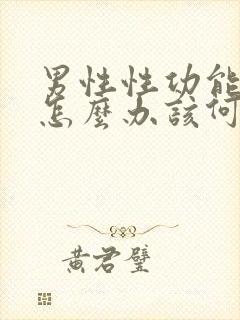 男性性功能
怎麼办該何
黄君璧